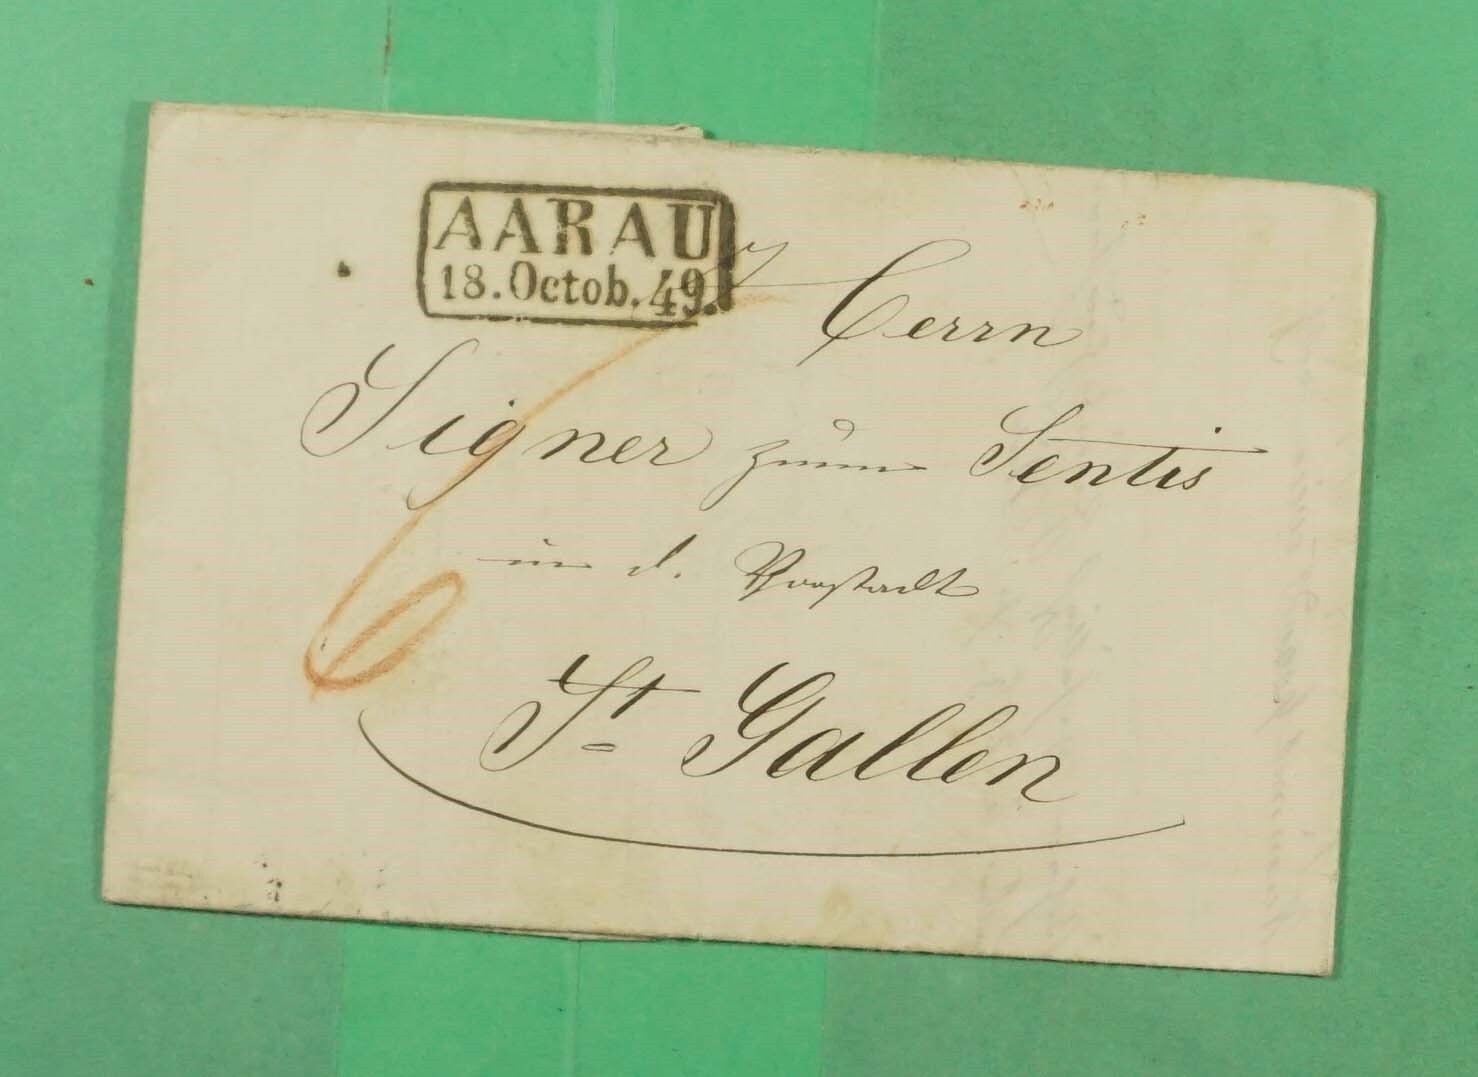 AARAU
18. Octob. 49.
Herrn
Signer zum Sentis
in d. Vorstadt
St Gallen
6